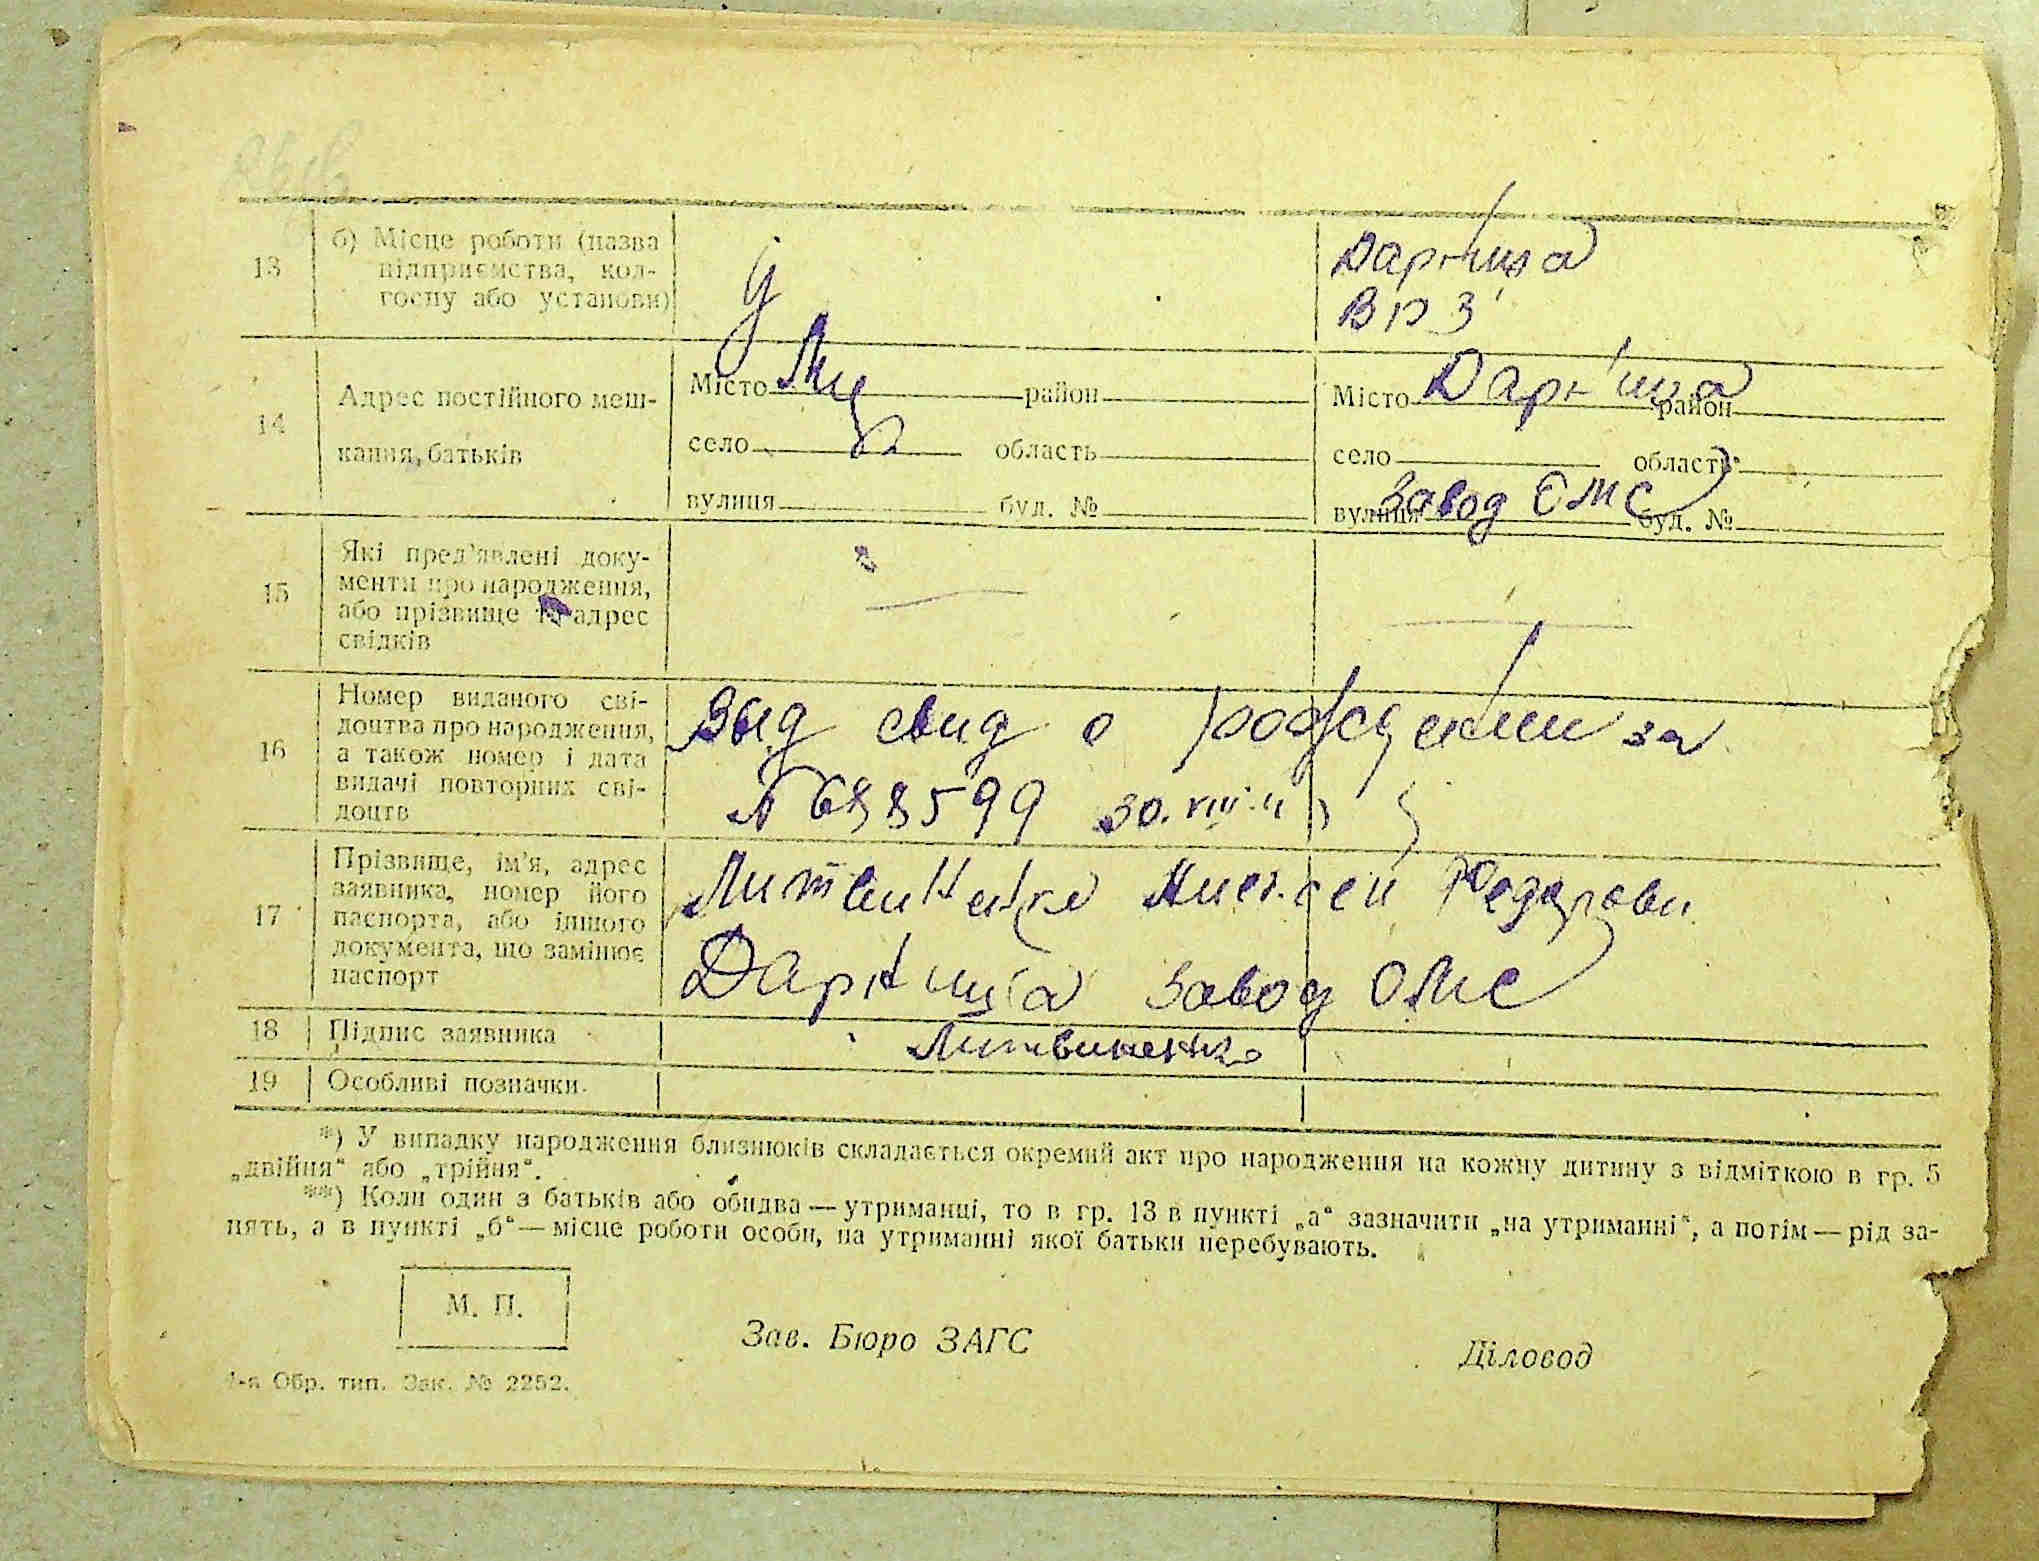 13
б) Місце роботи (назва
підприємства, кол-
госпу або установи)
Дарница
ВРЗ
14
Адрес постійного меш-
кання, батьків
Місто район
село область
вулиця буд. №
Місто Дарница район
село область
вулиця завод ОМС буд. №
15
Які пред'явлені доку-
менти про народження,
або прізвище та адрес
свідків
16
Номер виданого сві-
доцтва про народження,
а також номер і дата
видачі повторних сві-
доцтв
Выд свид о рождении за
№ 688599 30.VIII.
17
Прізвище, ім'я, адрес
заявника, номер його
паспорта, або іншого
документа, що замінює
паспорт
Литвиненко Алексей Федорови
Дарница завод ОМС
18 Підпис заявника
Литвиненко
19 Особливі позначки.
*) У випадку народження близнюків складається окремий акт про народження на кожну дитину з відміткою в гр. 5
„двійня“ або „трійня“.
**) Коли один з батьків або обидва — утриманці, то в гр. 13 в пункті „а“ зазначити „на утриманні“, а потім — рід за-
нять, а в пункті „б“ — місце роботи особи, на утриманні якої батьки перебувають.
М. П.
Зав. Бюро ЗАГС
Діловод
4-а Обр. тип. Зак. № 2252.